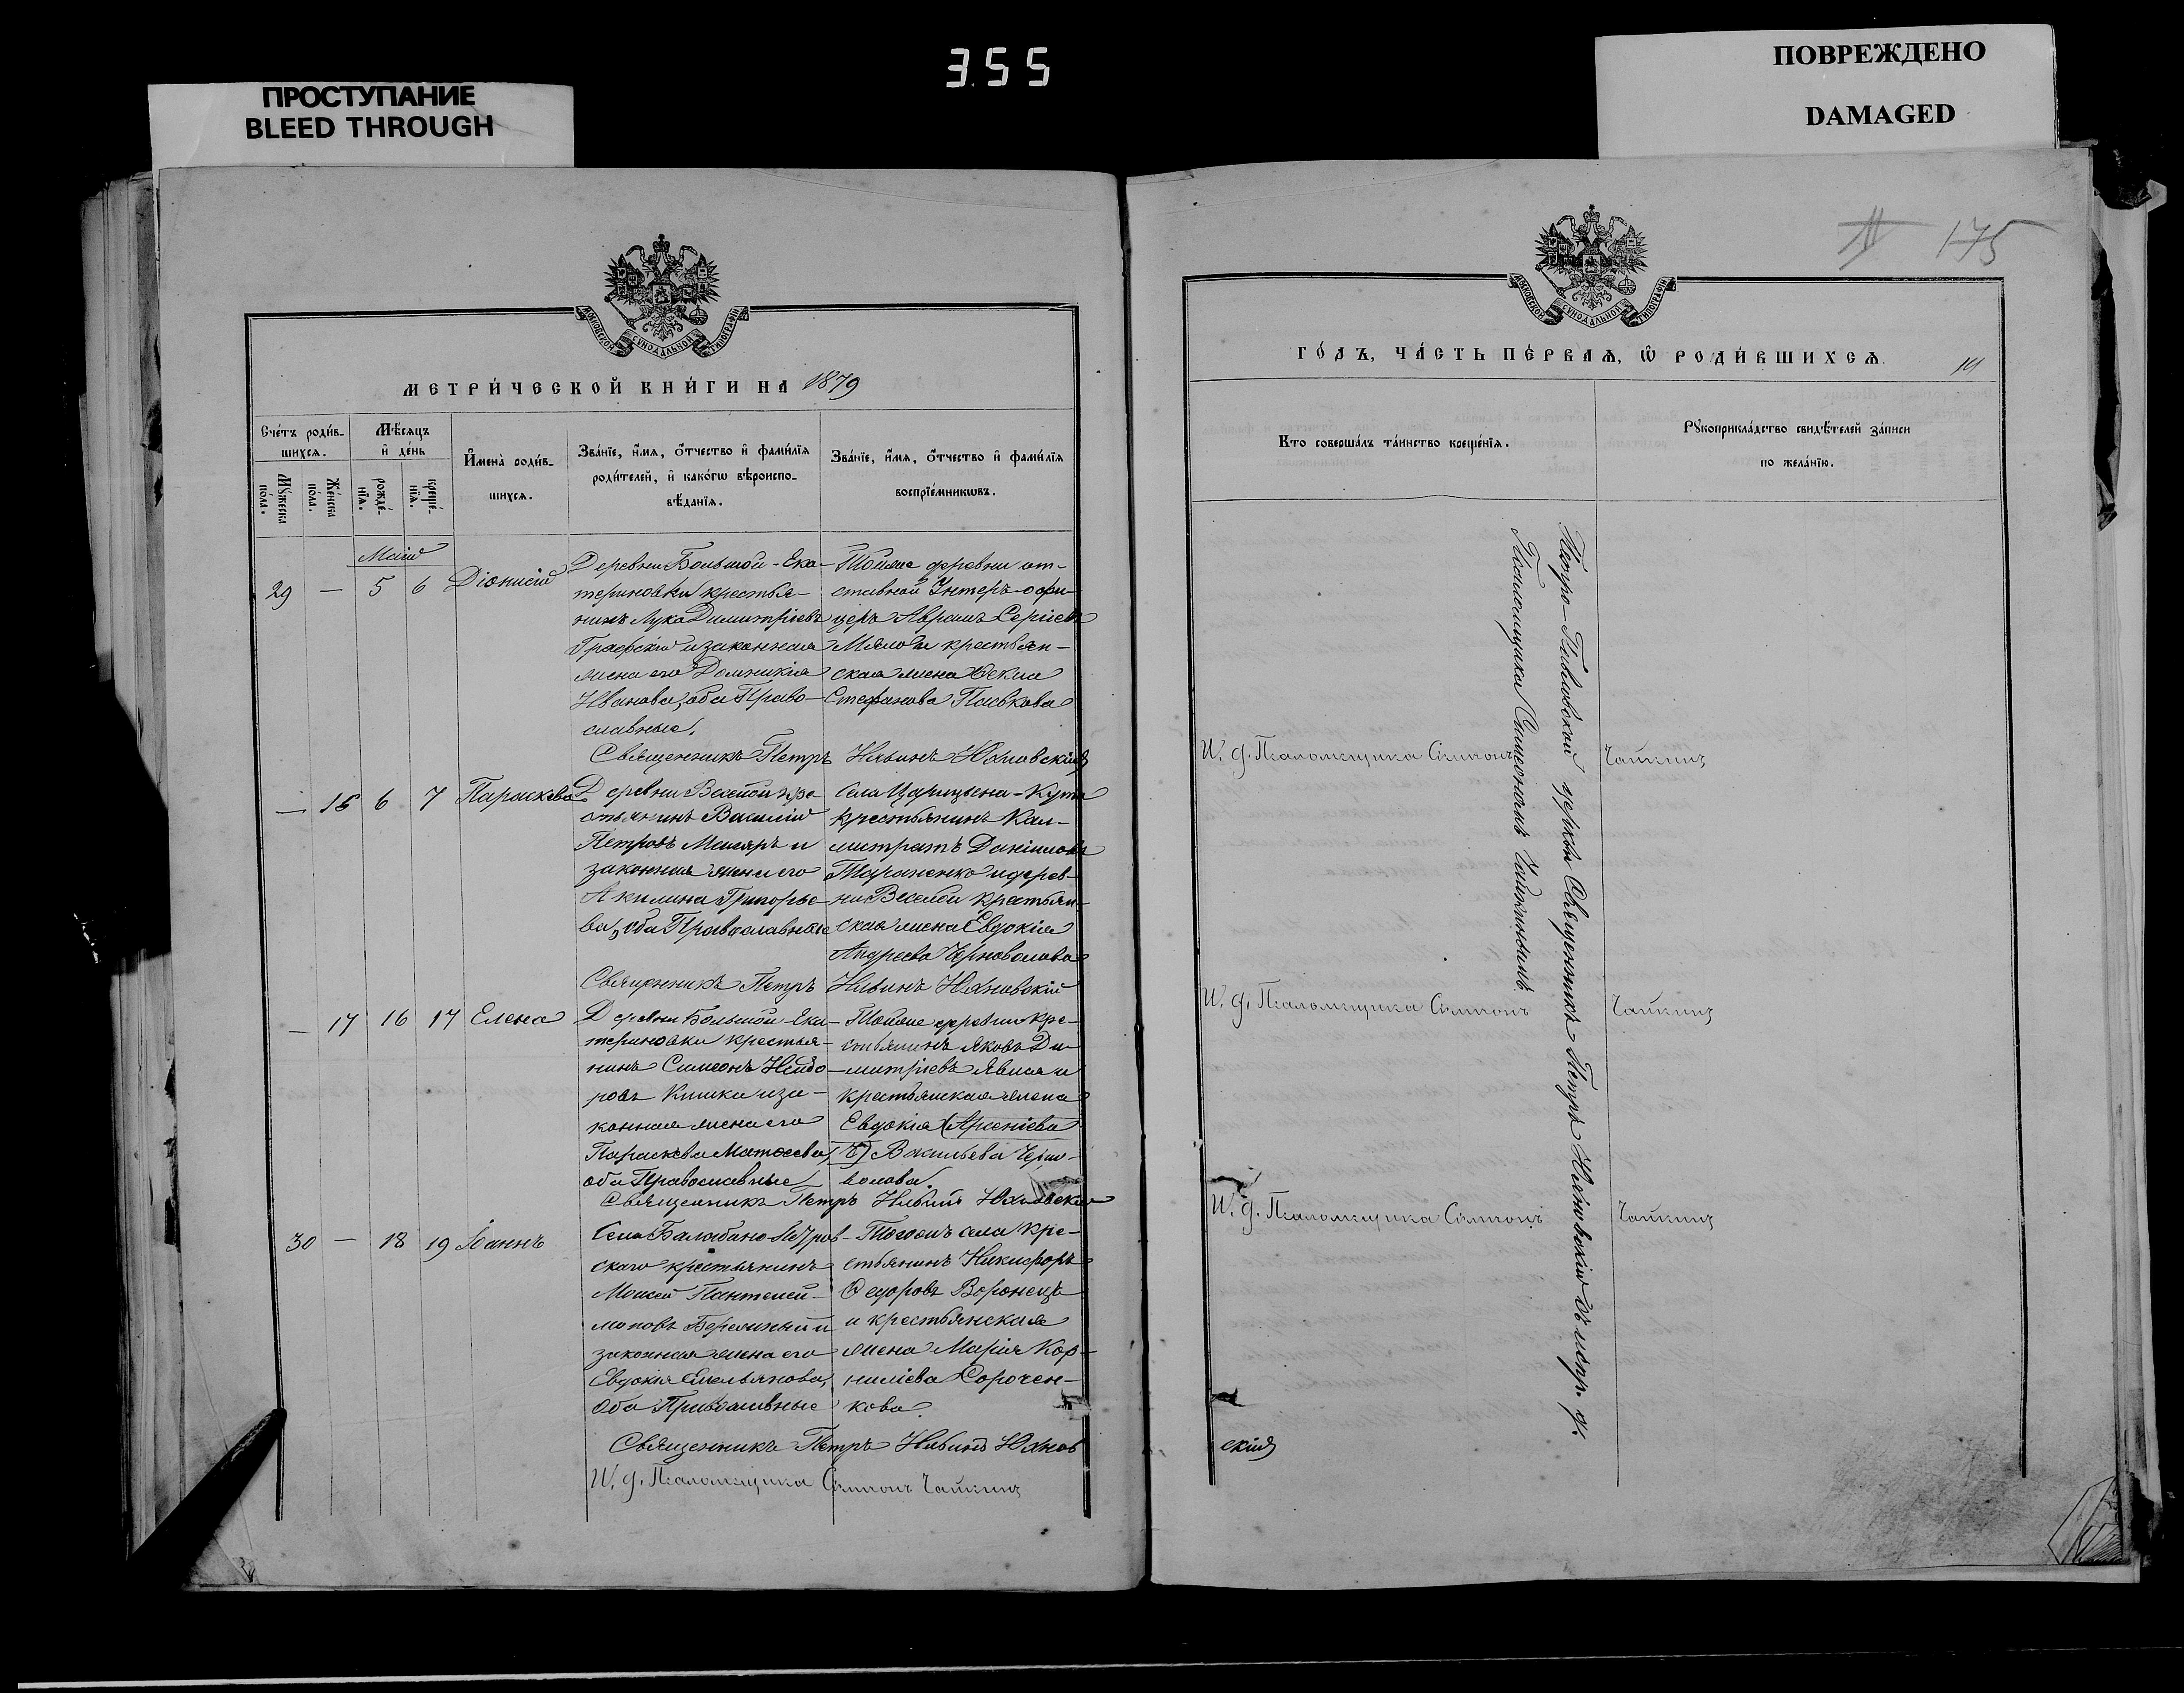 355
ПРОСТУПАНИЕ
BLEED THROUGH
ПОВРЕЖДЕНО
DAMAGED
175
МОСКОВСКОЙ СѴНОДАЛЬНОЙ ТИПОГРАФІИ
МЕТРИ́ЧЕСКОЙ КНИ́ГИ НА 1879
Сче́тъ роди́в-
шихсѧ.
Мѣ́сѧцъ
и҆ де́нь
И҆мена̀ роди́в-
шихсѧ.
Зва́нїе, и҆́мѧ, ѻ҆́тчество и҆ фами́лїѧ
роди́телей, и҆ како́гѡ вѣроиспо-
вѣ́данїѧ.
Зва́нїе, и҆́мѧ, ѻ҆́тчество и҆ фами́лїѧ
воспрїе́мникѡвъ.
Мꙋ́жеска
по́ла.
Же́нска
по́ла.
рожде́-
нїѧ.
креще́-
нїѧ.
29 — 5 6 Діонисій
Деревни Большой-Ека-
териновки крестья-
нинъ Лука Димитріевъ
Графскій и законная
жена его Домникія
Иванова, оба Право-
славные.
Тойже деревни от-
ставной Унтеръ-офи-
церъ Аврамъ Сергіевъ
крестьян-
ская жена
Стефанова Паськова
Священникъ Петръ Ильинъ Юхновскій
— 16 6 7 Параскева
Деревни Веселой кре
стьянинъ Василій
Петровъ и
законная жена его
Акилина Григорье-
ва, оба Православные
Села Царицына-Кута
крестьянинъ Кал-
листратъ Даніиловъ
Тараненко и дерев-
ни Веселой крестьян-
ская жена Евдокія
Андреева Черноволова
Священникъ Петръ Ильинъ Юхновскій
— 17 16 17 Елена
Деревни Большой-Ека-
териновки крестья-
нинъ Симеонъ Исидо-
ровъ Кишка и за-
конная жена его
Параскева Матѳеева,
оба Православные
Тойже деревни кре-
стьянинъ Яковъ Ди-
митріевъ и
крестьянская жена
Евдокія (Арсеніева
Васильева Черно-
волова.
Священникъ Петръ Ильинъ Юхновскій
30 — 18 19 Іоаннъ
Села Балабино-Петров-
скаго крестьянинъ
Моисей Пантелей-
моновъ Бережный и
законная жена его
Евдокія Емельянова,
Оба Православные
Тогожъ села Кре-
стьянинъ Никифоръ
Ѳедоровъ Воронецъ
и крестьянская
жена Марія Кор-
нилієва Сорочен-
кова.
Священникъ Петръ Ильинъ Юхнов
скій
И. д. Псаломщика Симеонъ Чайкинъ
МОСКОВСКОЙ СѴНОДАЛЬНОЙ ТИПОГРАФІИ
ГО́ДЪ, ЧА́СТЬ ПЕ́РВАѦ, Ѡ҆ РОДИ́ВШИХСѦ.
Кто̀ соверша́лъ та́инство креще́нїѧ.
Рꙋкоприкла́дство свидѣ́телей за́писи
по жела́нїю.
Петро-Павловской церкви Священникъ Петръ Юхновскій съ испр. д.
Псаломщика Симеономъ Чайкинымъ.
И. д. Псаломщика Симеонъ Чайкинъ
И. д. Псаломщика Симеонъ Чайкинъ
И. д. Псаломщика Симеонъ Чайкинъ